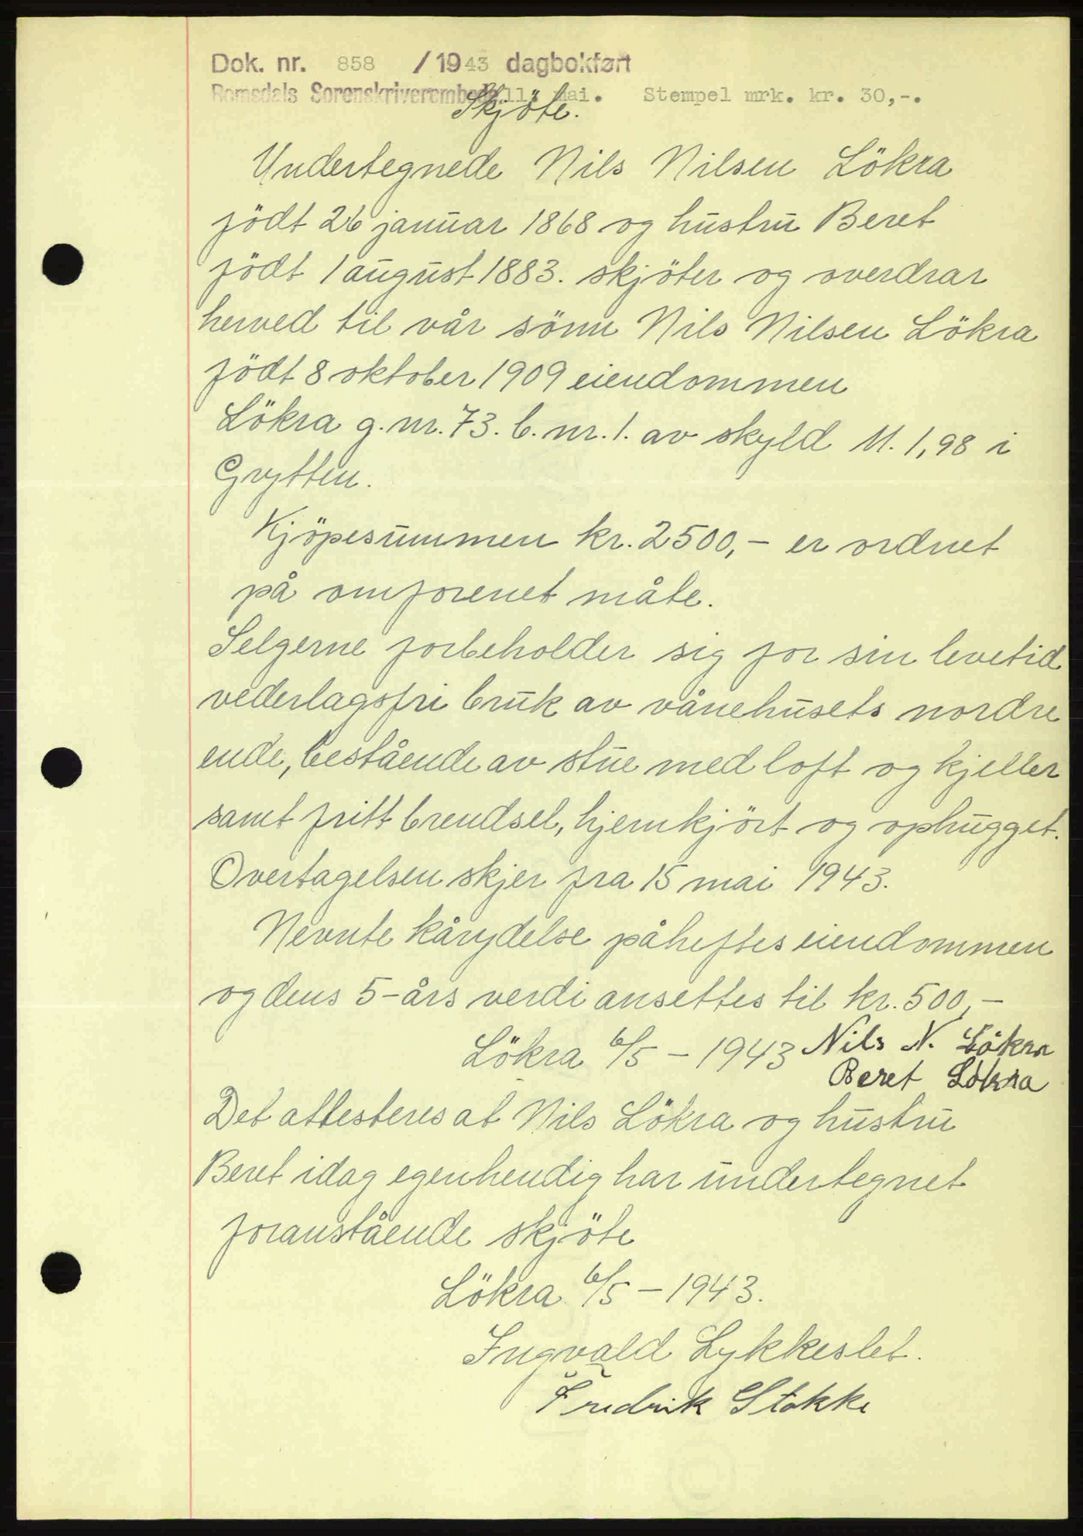 Dok. nr. 858 /1943 dagbokført
Romsdals Sorenskriverembede 11. mai. Stempel mrk. kr. 30,-.
Skjöte.
Undertegnede Nils Nilsen Lökra
födt 26 januar 1868 og hustru Beret
födt 1 august 1883. skjöter og overdrar
herved til vår sönn Nils Nilsen Lökra
födt 8 oktober 1909 eiendommen
Lökra g.nr. 73. b.nr. 1. av skyld M. 1,98 i
Grytten.
Kjöpesummen kr. 2500,- er ordnet
på omforenet måte.
Selgerne forbeholder sig for sin levetid
vederlagsfri bruk av vånehusets nordre
ende, bestående av stue med loft og kjeller
samt fritt brendsel, hjemkjört og ophugget.
Overtagelsen skjer fra 15 mai 1943.
Nevnte kårydelse påheftes eiendommen
og dens 5-års verdi ansettes til kr. 500,-
Lökra 6/5 - 1943 Nils N. Lökra
Beret Lökra
Det attesteres at Nils Lökra og hustru
Beret idag egenhendig har undertegnet
foranstående skjöte
Lökra 6/5 - 1943.
Ingvald Lykkeslet.
Fredrik Stokke